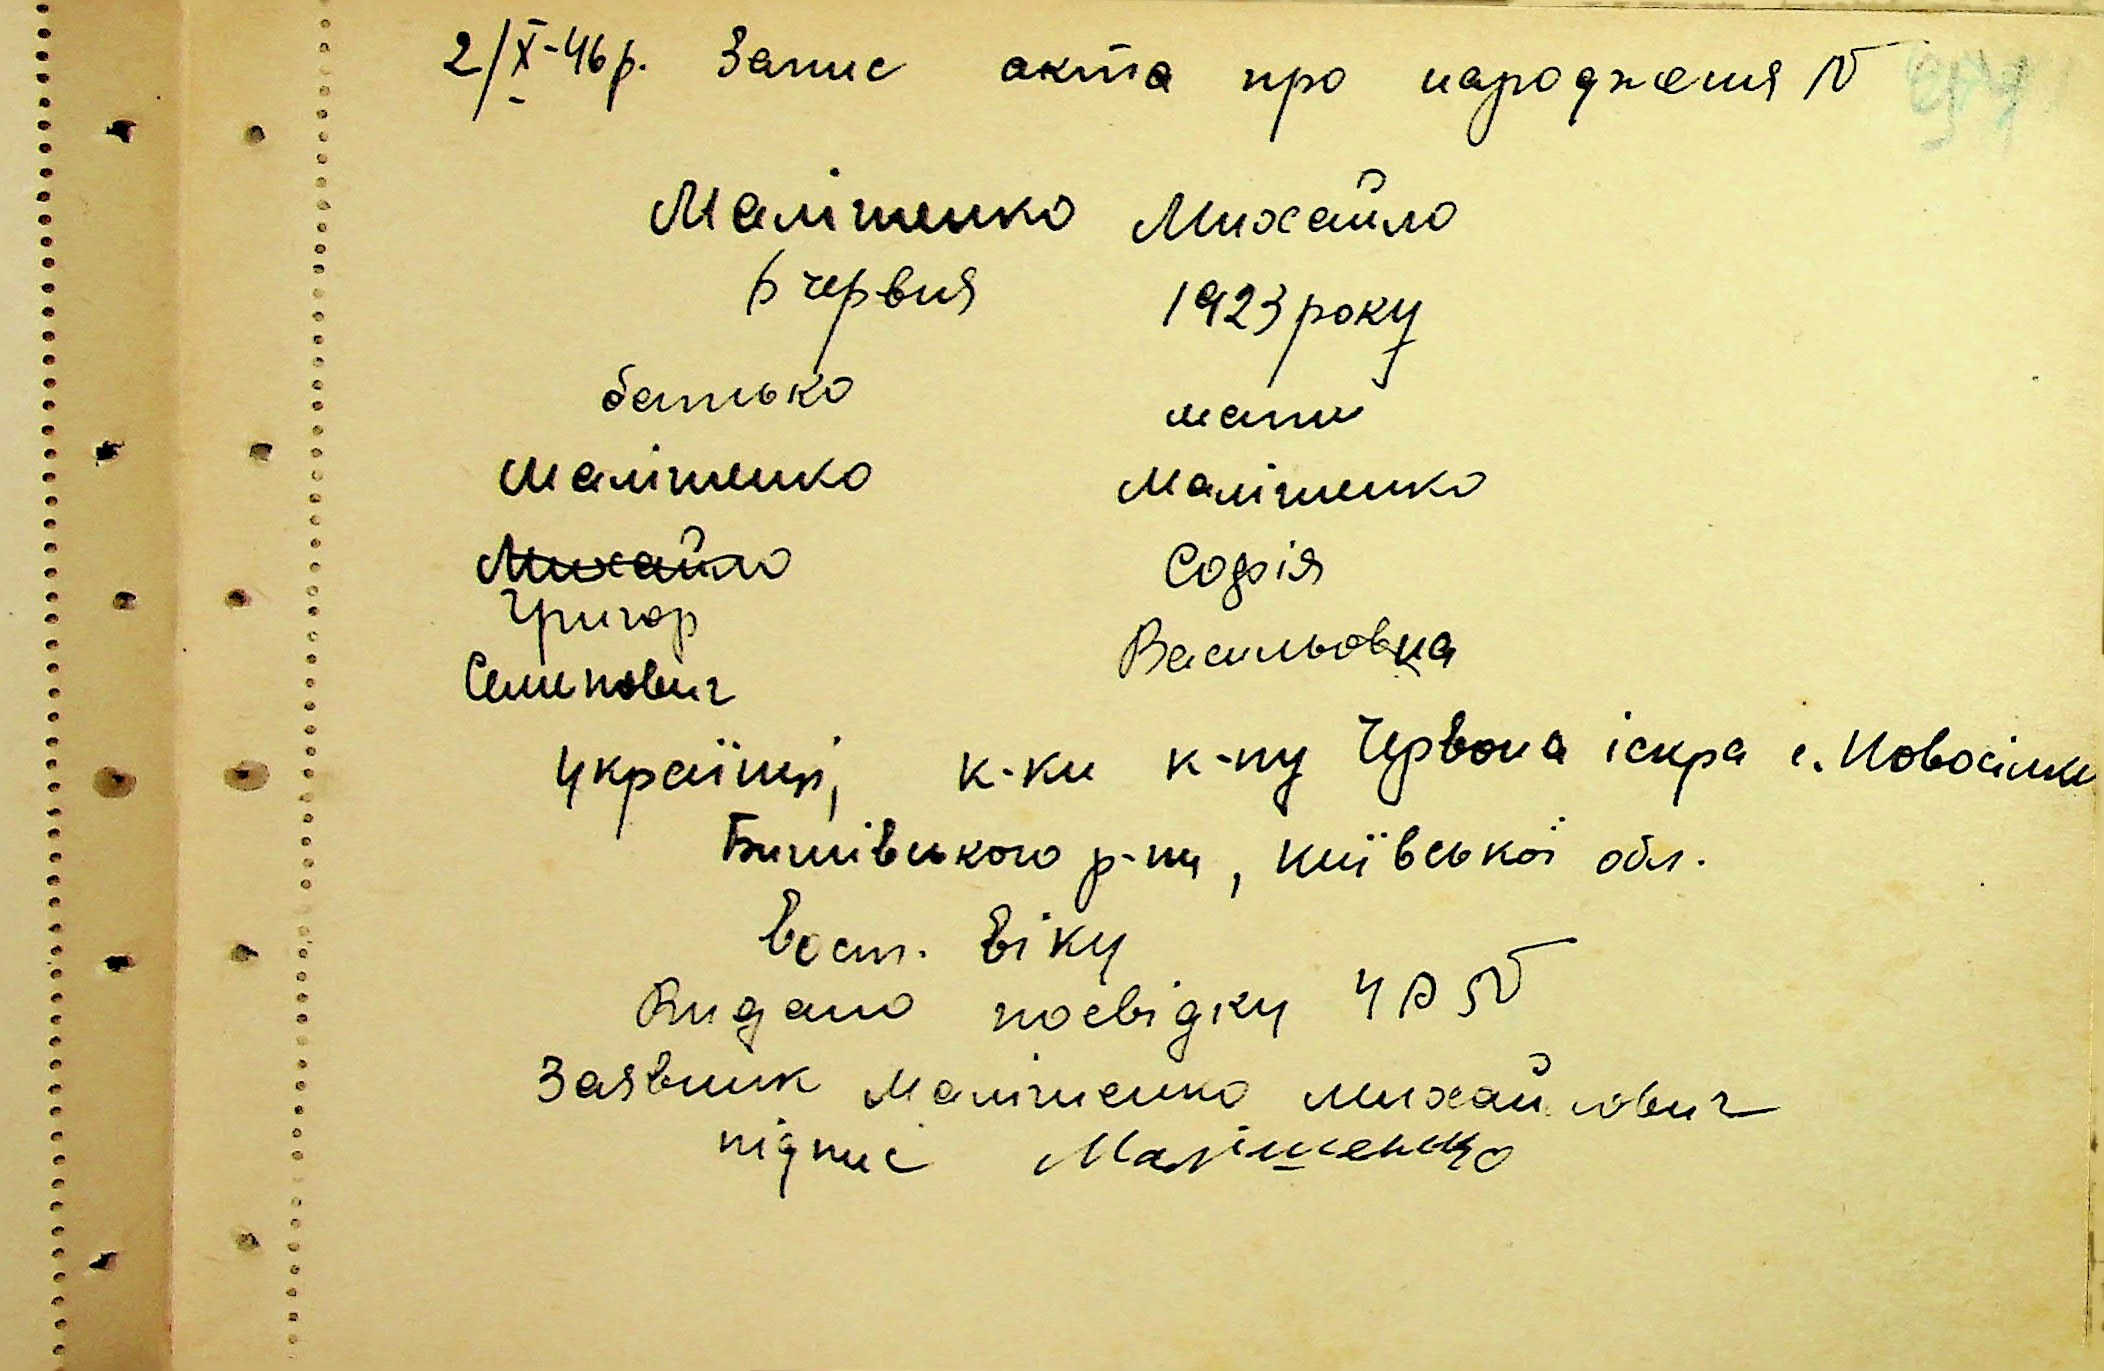 2/X-46 р. Запис акта про народження №
Малішенко Михайло
6 червня 1923 року
батько мати
Малішенко Малішенко
Михайло Софія
Григор
Семенович Васильовна
українці, к-ки к-пу Червона іскра с. Новосілки
Бишівського р-ну, Київської обл.
Вост. віку
Видано посвідку УА №
Заявник Малішенко Михайлович
підпис Малишенко